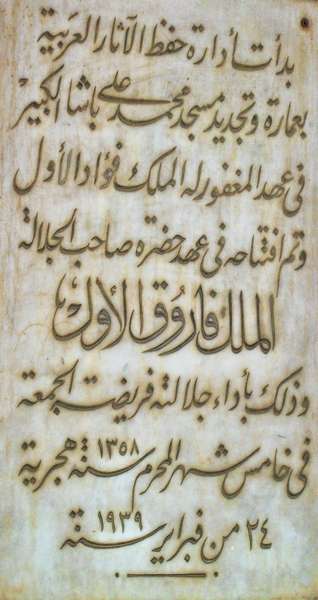 بدأت أدارة حفظ الآثار العربية
بعمارة وتجديد مسجد محمد على باشا الكبير
فى عهد المغفور له الملك فؤاد الأول
وتم افتتاحه فى عهد حضرة صاحب الجلالة
الملك فاروق الأول
وذلك بأداء جلالته فريضة الجمعة
فى خامس شهر المحرم سنة ١٣٥٨ هجرية
٢٤ من فبراير سنة ١٩٣٩